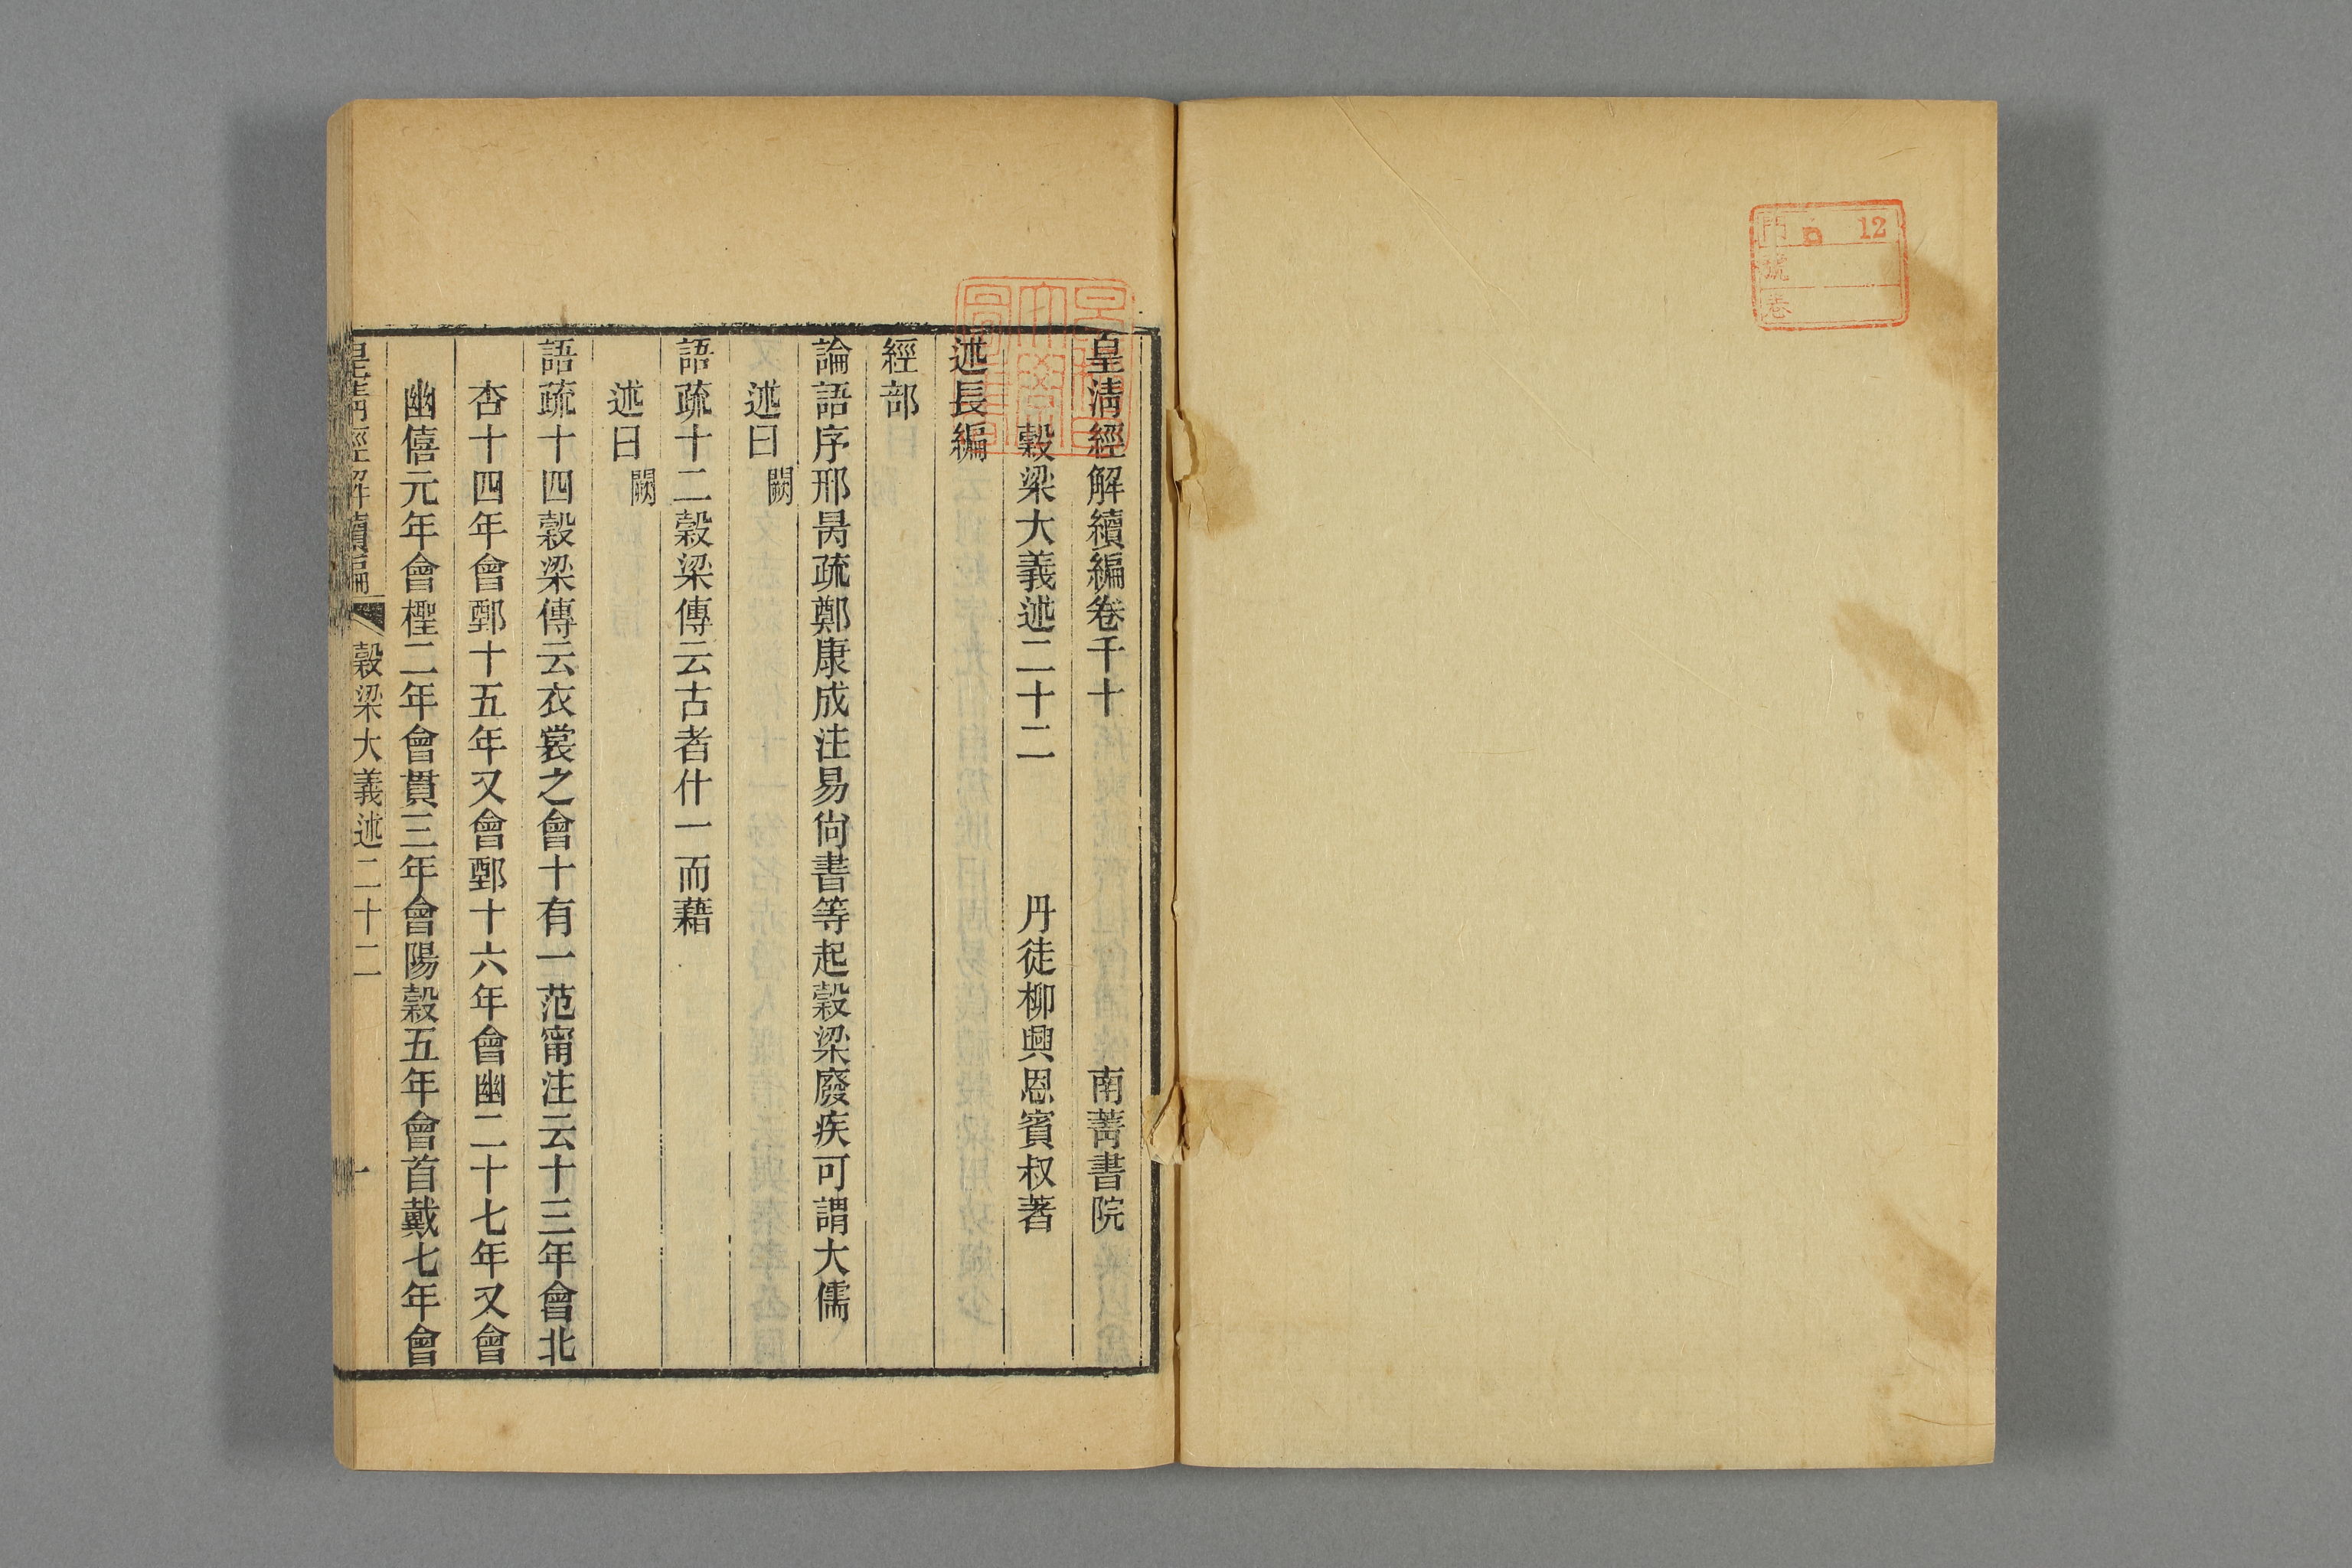 門 12
號
卷
皇清經解續編卷千十 南菁書院
穀梁大義述二十二 丹徒柳興恩賓叔著
述長編
經部
論語序邢昺疏鄭康成注易尙書等起穀梁廢疾可謂大儒
述曰闕
語疏十二穀梁傳云古者什一而藉
述曰闕
語疏十四穀梁傳云衣裳之會十有一范甯注云十三年會北
杏十四年會鄄十五年又會鄄十六年會幽二十七年又會
幽僖元年會檉二年會貫三年會陽穀五年會首戴七年會
皇淸經解續編 穀梁大義述二十二 一